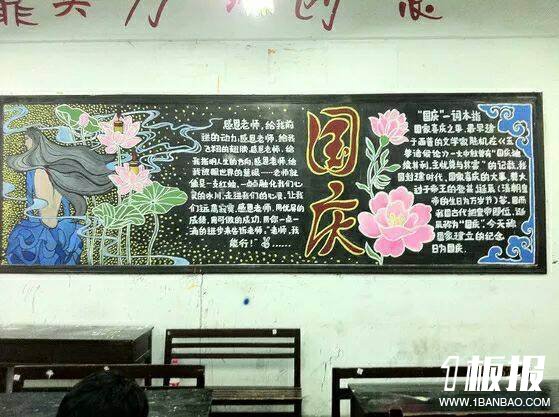 感恩老师，给我前
进的动力。感恩老师，给我
飞翔的翅膀。感恩老师，给
我指明人生的方向。感恩老师，给
我放眼世界的慧眼……老师就
像是一支红烛，一点点融化我们心
灵的冰川，走进我们的心灵，让我
们远离寂寞。感恩老师，用优异的
成绩，用可骄的成功，用你一点一
滴的进步来告诉老师，“老师，我
能行！”
国庆
“国庆”一词，本指
国家喜庆之事，最早见
于西晋的文学家陆机在《五
等诸侯论》一文中就曾有“国庆独
飨其利，主忧莫与其害”的记载，我
国封建时代、国家喜庆的大事，莫大
过于帝王的登基、诞辰（清朝皇
帝的生日为万岁节）等。因而
我国古代把皇帝即位、诞
辰称为“国庆”。今天称
国家建立的纪念
日为国庆。
1板报
WWW.1BANBAO.COM